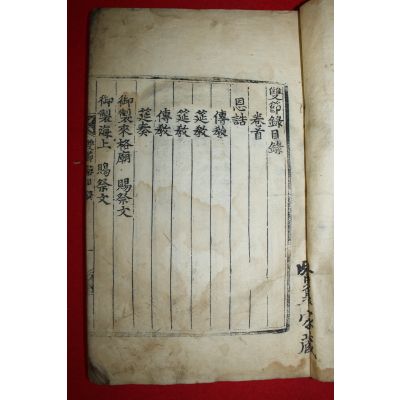 雙節錄目錄
卷首
恩誥
傳敎
筵敎
筵敎
傳敎
筵奏
御製來格廟 賜祭文
御製海上 賜祭文
家藏